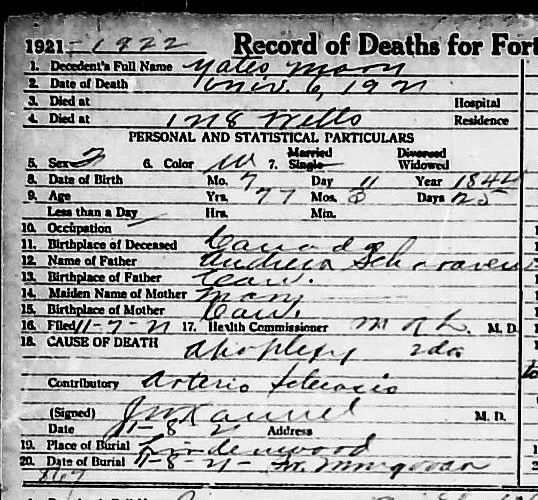 1921-1922 Record of Deaths for Fort
1. Decedent's Full Name Yates Mary
2. Date of Death Nov. 6, 1921
3. Died at Hospital
4. Died at 1218 Wells Residence
PERSONAL AND STATISTICAL PARTICULARS
5. Sex F 6. Color W 7. Married Single Divorced Widowed
8. Date of Birth Mo. 7 Day 11 Year 1844
9. Age Yrs. 77 Mos. 3 Days 25
Less than a Day Hrs. Min.
10. Occupation
11. Birthplace of Deceased Canada
12. Name of Father Andrew
13. Birthplace of Father Can.
14. Maiden Name of Mother Mary
15. Birthplace of Mother Can.
16. Filed 11-7-21 17. Health Commissioner M. D.
18. CAUSE OF DEATH Apoplexy 2 da
Contributory Arterio Sclerosis
(Signed) M. D.
Date 11-8-21 Address
19. Place of Burial Lindenwood
20. Date of Burial 11-8-21-